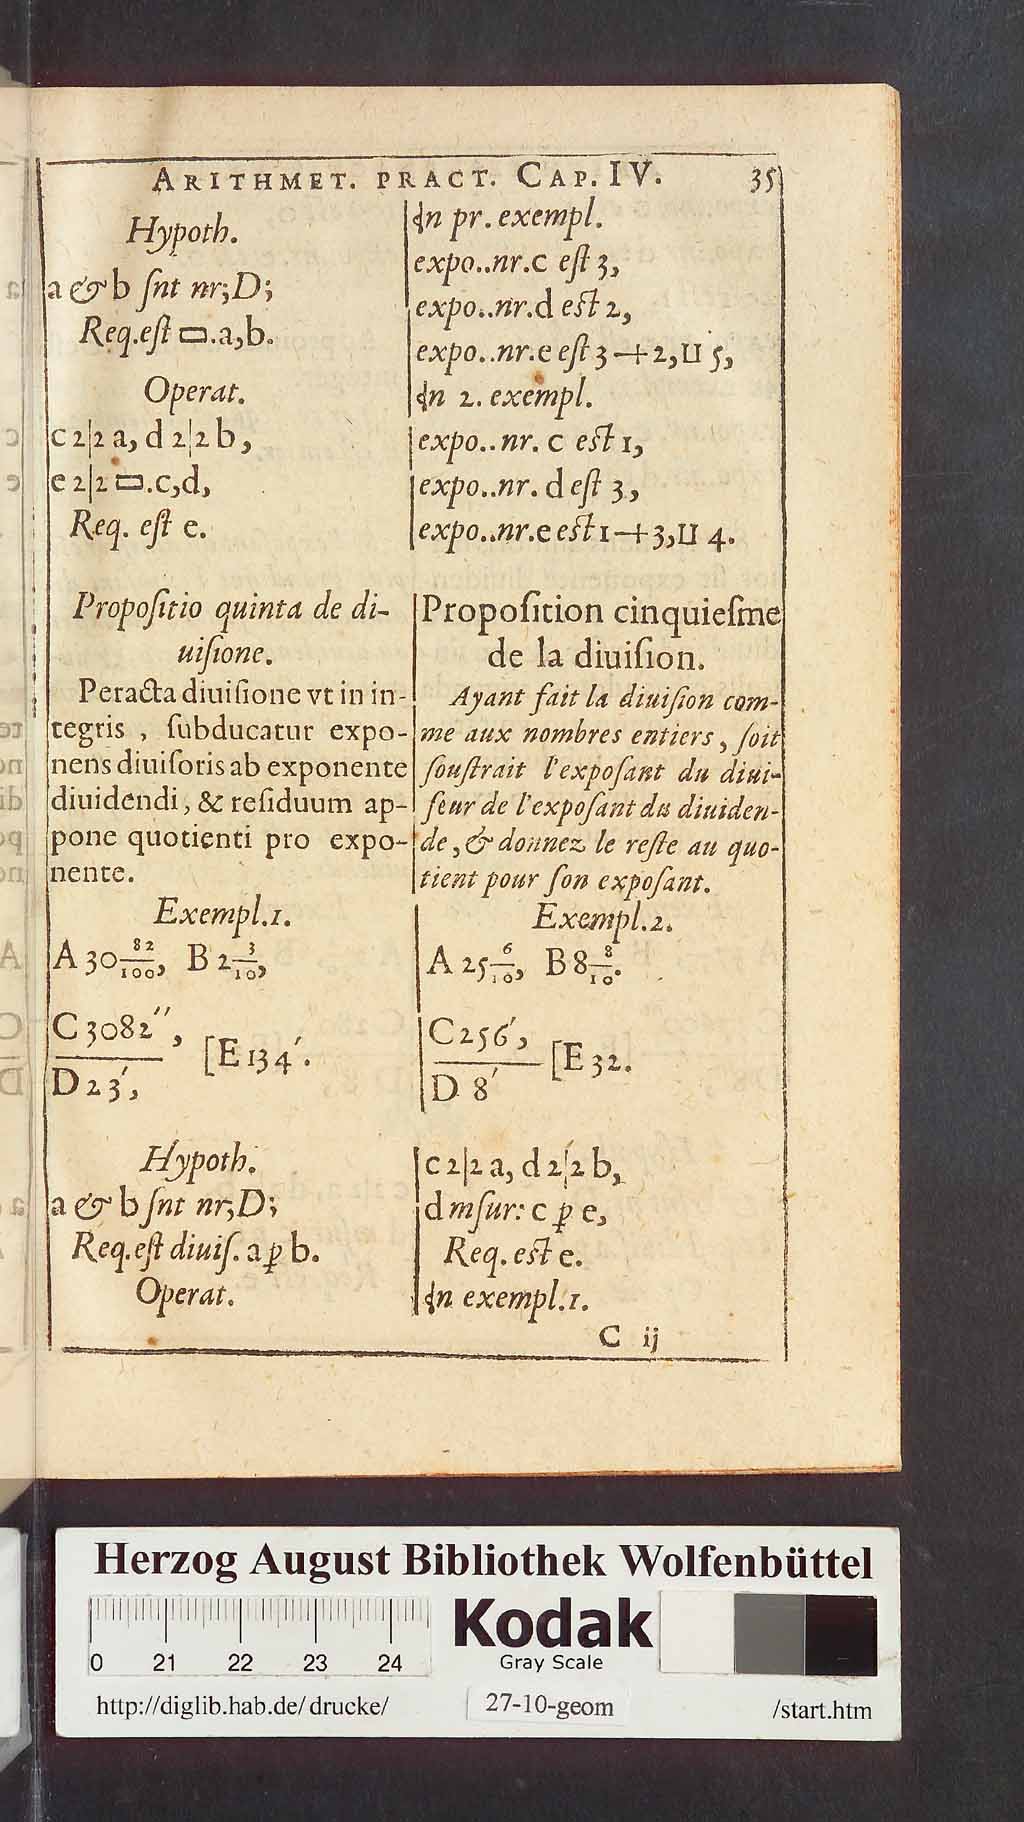 ARITHMET. PRACT. CAP. IV. 35
Hypoth.
a & b ſnt nr;D;
Req.eſt ▭.a,b.
Operat.
c 2|2 a, d 2|2 b,
e 2|2 ▭.c,d,
Req. eſt e.
In pr. exempl.
expo..nr.c eſt 3,
expo..nr.d eſt 2,
expo..nr.e eſt 3 + 2, ⊔ 5,
In 2. exempl.
expo..nr. c eſt 1,
expo..nr. d eſt 3,
expo..nr.e eſt 1 + 3, ⊔ 4.
Propoſitio quinta de di-
uiſione.
Peracta diuiſione vt in in-
tegris , ſubducatur expo-
nens diuiſoris ab exponente
diuidendi, & reſiduum ap-
pone quotienti pro expo-
nente.
Propoſition cinquieſme
de la diuiſion.
Ayant fait la diuiſion com-
me aux nombres entiers, ſoit
ſouſtrait l'expoſant du diui-
ſeur de l'expoſant du diuiden-
de, & donnez le reſte au quo-
tient pour ſon expoſant.
Exempl.1.
A 30 82/100, B 2 3/10,
C 3082′′, [E 134′.
D 23′,
Exempl.2.
A 25 6/10, B 8 8/10.
C 256′, [E 32.
D 8′
Hypoth.
a & b ſnt nr;D;
Req.eſt diuiſ. a ꝑ b.
Operat.
c 2|2 a, d 2|2 b,
d mſur: c ꝑ e,
Req. eſt e.
In exempl.1.
C ij
Herzog August Bibliothek Wolfenbüttel
0 21 22 23 24
Kodak
Gray Scale
http://diglib.hab.de/drucke/ 27-10-geom /start.htm